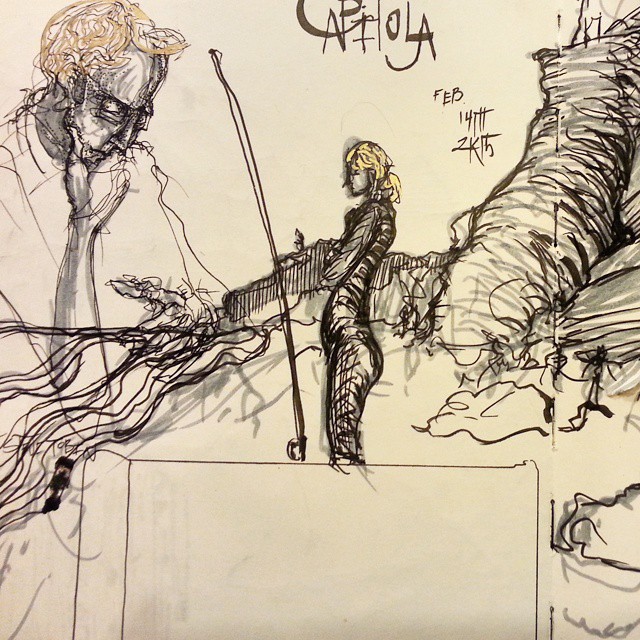 CAPITOLA
FEB
14TH
2K15